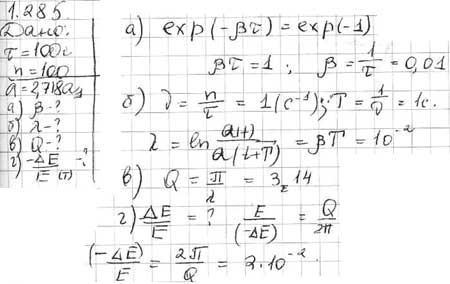 1.285
Дано:
τ = 100с
n = 100
a = 2,718a₁
а) β - ?
б) λ - ?
в) Q - ?
г) -ΔE/E (T) - ?
а) exp(-βτ) = exp(-1)
βτ = 1 ; β = 1/τ = 0,01
б) ν = n/τ = 1 (с⁻¹); T = 1/ν = 1с.
λ = ln a(t)/a(t+T) = βT = 10⁻²
в) Q = π/λ = 3,14
г) ΔE/E = ? E/(-ΔE) = Q/2π
(-ΔE)/E = 2π/Q = 2·10⁻².